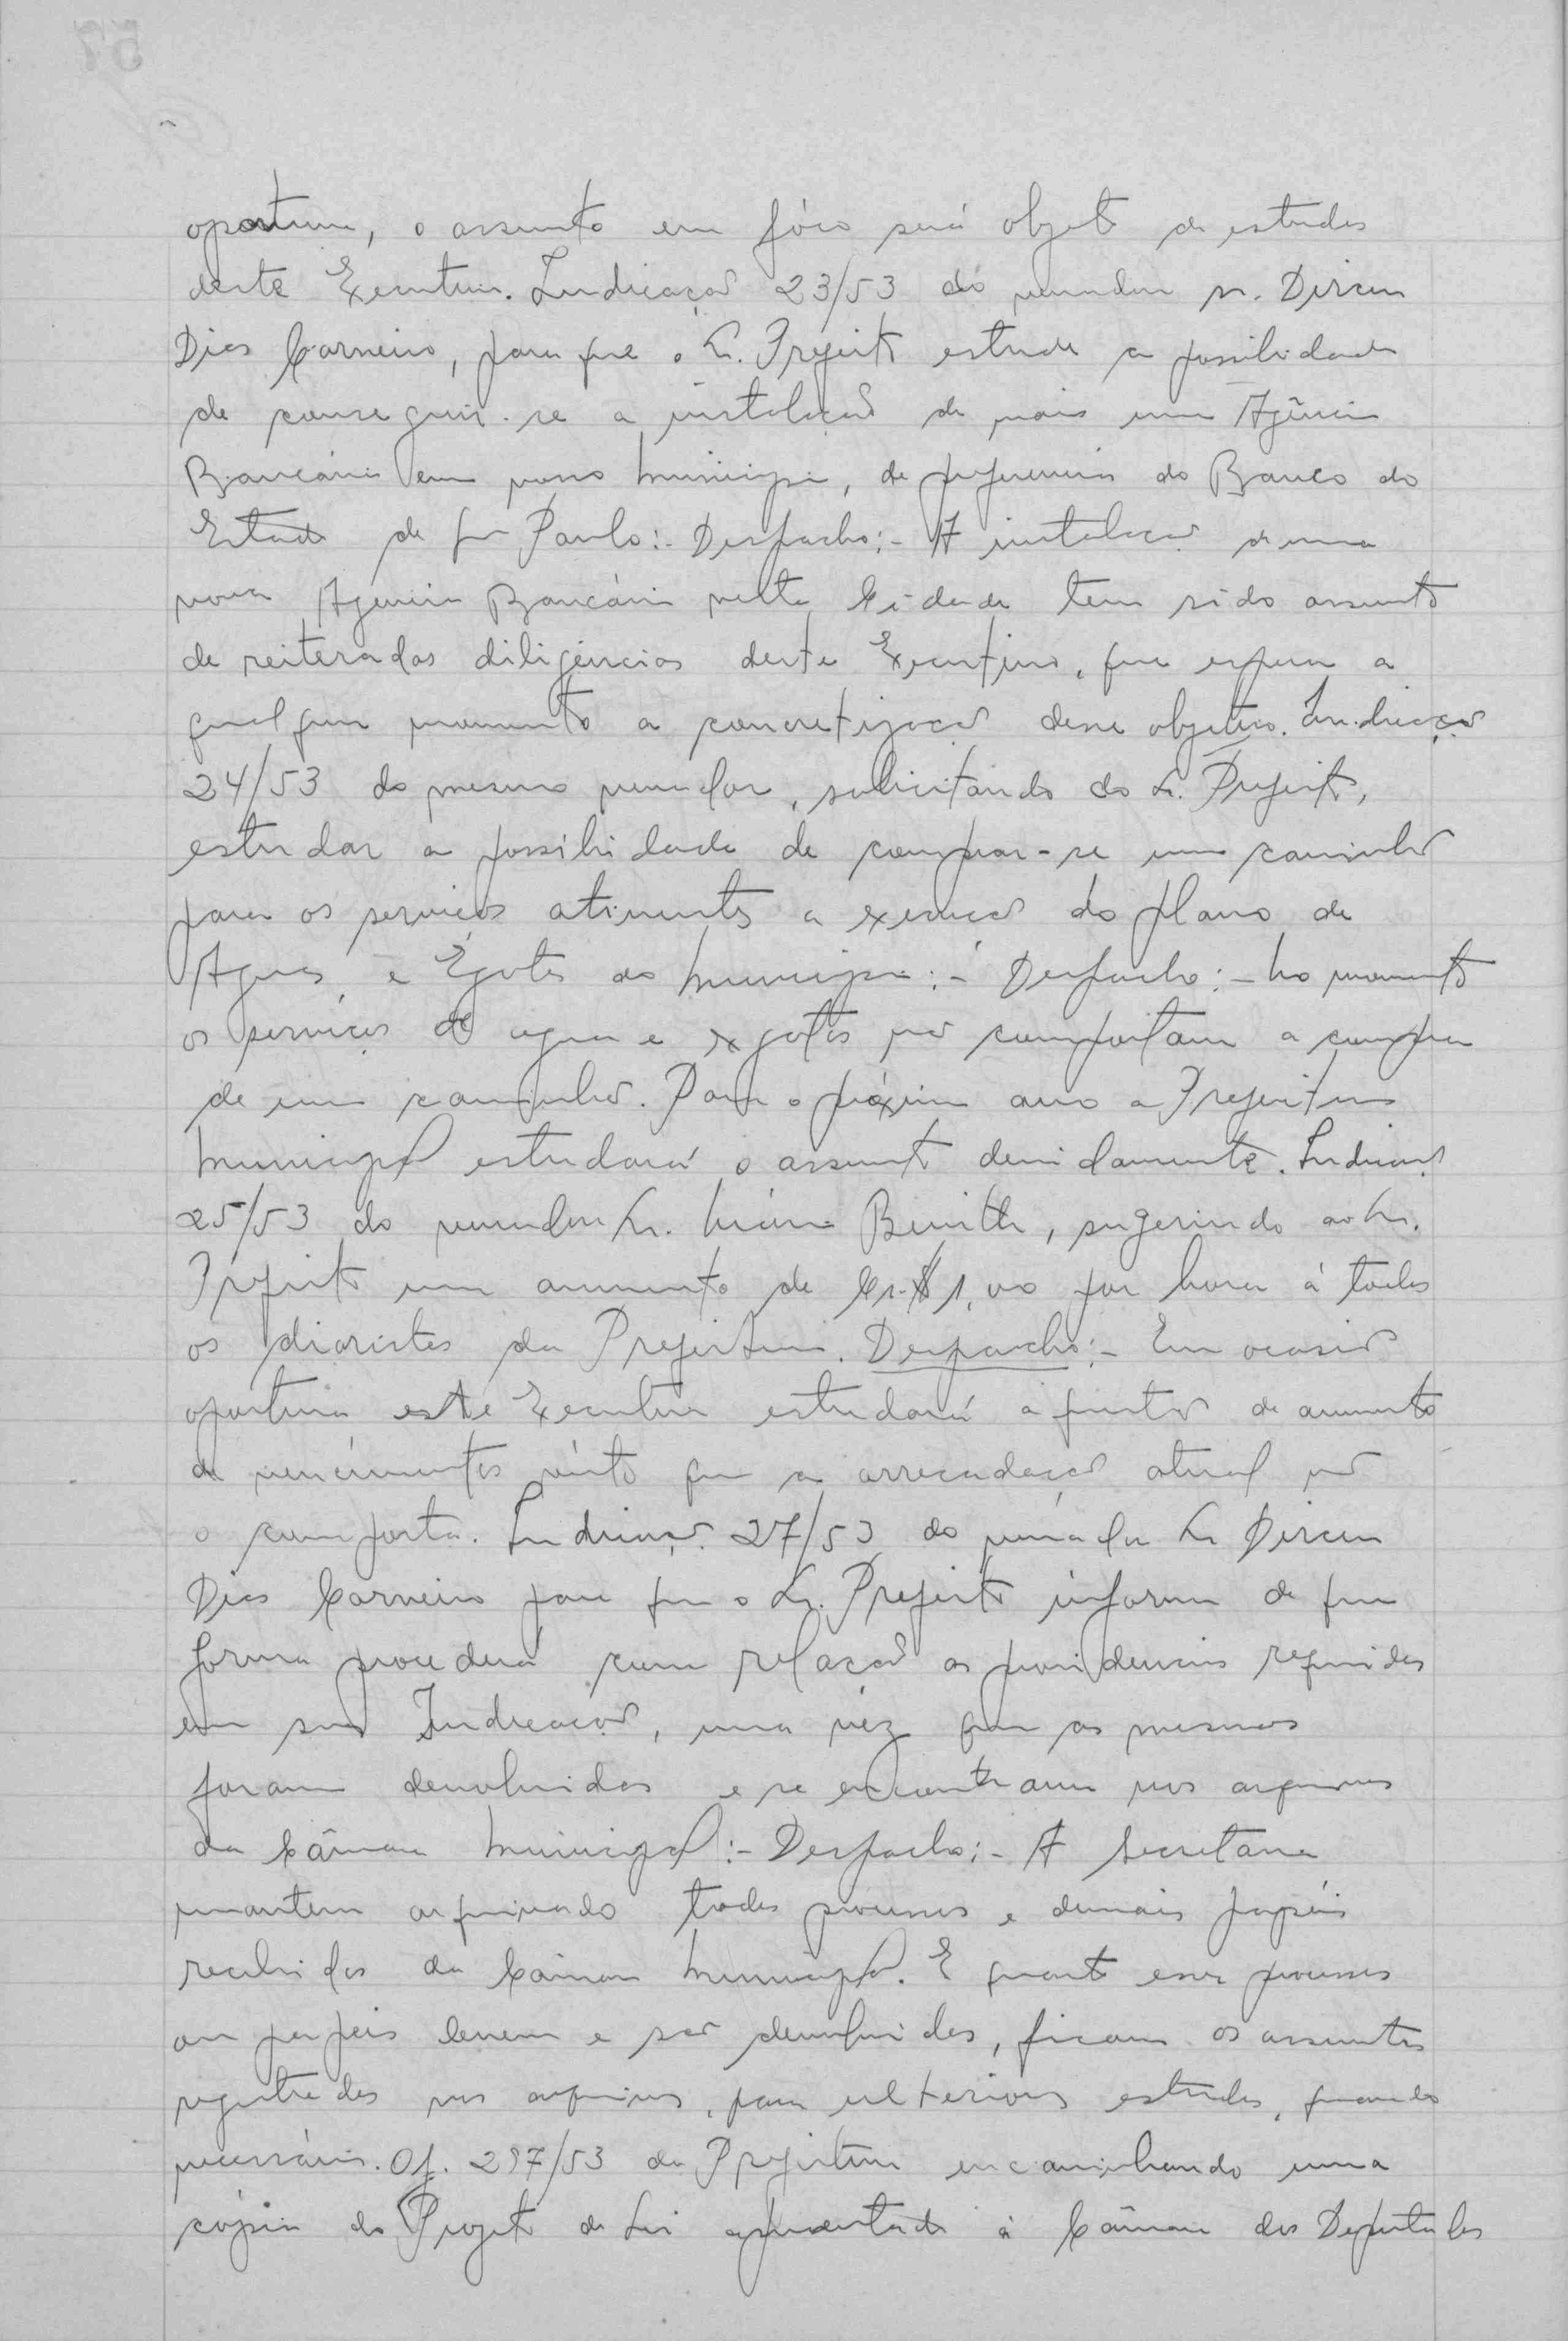 oportuna, o assunto em fóco será objeto de estudos
deste Executivo. Indicação 23/53 do vereador sr. Dirceu
Dias Carneiro, para que o Sr. Prefeito estude a possibilidade
de conseguir-se a instalação de mais uma Agência
Bancária em nosso Municipio, de preferencia do Banco do
Estado de São Paulo:- Despacho:- A instalação de uma
nova Agencia Bancária nesta Cidade tem sido assunto
de reiteradas diligências deste Executivo, que espera a
qualquer momento a concretização desse objetivo. Indicação
24/53 do mesmo vereador, solicitando do Sr. Prefeito,
estudar a possibilidade de comprar-se um caminhão
para os serviços atinentes a execução do plano de
Aguas e Egotos do Municipio:- Despacho:- No momento
os serviços de agua e exgotos não comportam a compra
de um caminhão. Para o próximo ano a Prefeitura
Municipal estudará o assunto devidamente. Indicação
25/53 do vereador Sr. Mário Beni, sugerindo ao Sr.
Prefeito um aumento de Cr.$ 1,00 por hora á todos
os diaristas da Prefeitura. Despacho:- Em ocasião
oportuna este Executivo estudará a questão de aumento
de vencimentos visto que a arrecadação atual não
o comporta. Indicação 27/53 do vereador Sr Dirceu
Dias Carneiro para que o Sr. Prefeito informe de que
forma procederá com relação as providencias requeridas
em sua Indicação, uma vêz que as mesmas
foram devolvidas e se encontram nos arquivos
da Câmara Municipal:- Despacho:- A Secretaria
mantem arquivado todos processos e demais papéis
recebidos da Câmara Municipal. E quanto esses processos
ou papeis devem e ser devolvidos, ficam os assuntos
registrados nos arquivos, para ulteriores estudos, quando
necessários. Of. 297/53 da Prefeitura encaminhando uma
cópia do Projeto de Lei apresentado á Câmara dos Deputados